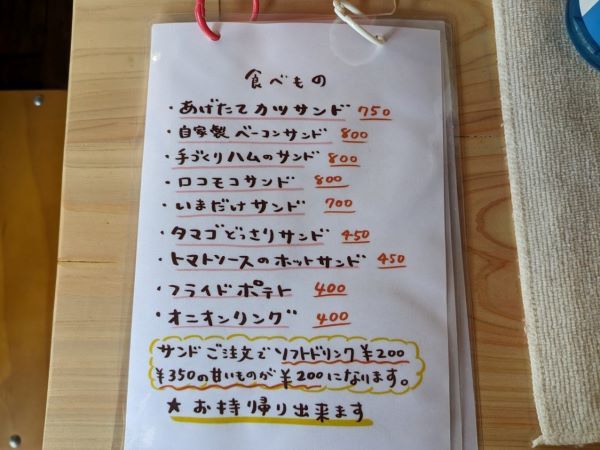 食べもの
・あげたてカツサンド 750
・自家製ベーコンサンド 800
・手づくりハムのサンド 800
・ロコモコサンド 800
・いまだけサンド 700
・タマゴどっさりサンド 450
・トマトソースのホットサンド 450
・フライドポテト 400
・オニオンリング 400
サンドご注文でソフトドリンク¥200
¥350の甘いものが¥200になります。
★お持帰り出来ます